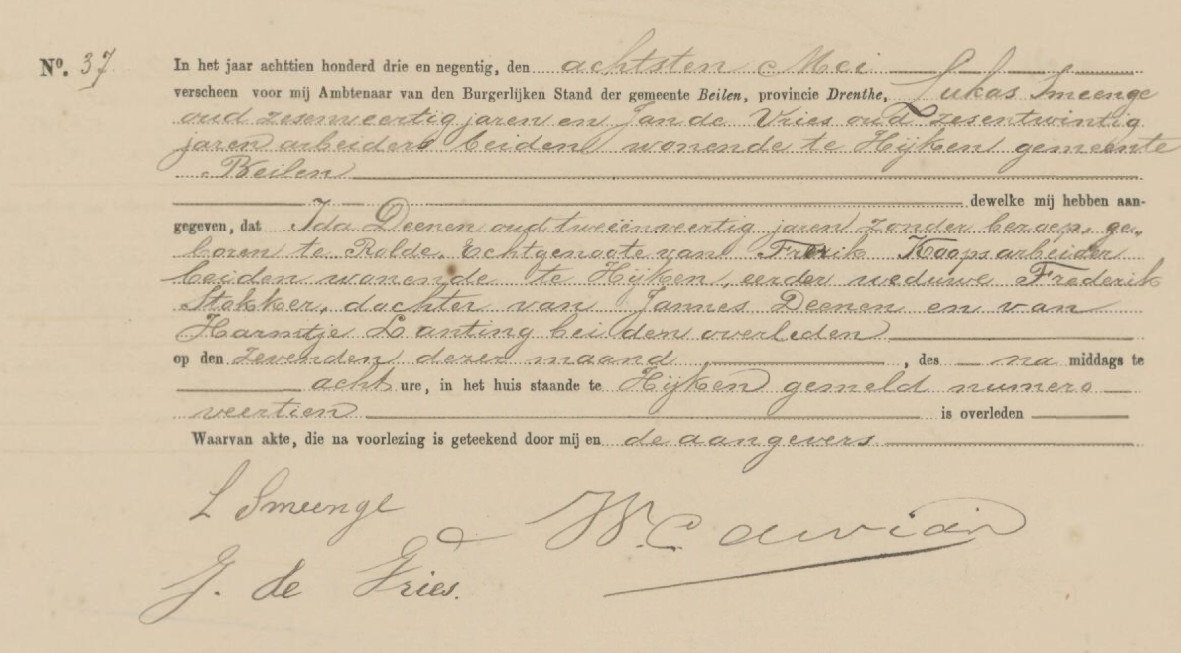 Nº. 37
In het jaar achttien honderd drie en negentig, den achtsten Mei
verscheen voor mij Ambtenaar van den Burgerlijken Stand der gemeente Beilen, provincie Drenthe, Lukas Smeenge
oud zesenveertig jaren en Jan de Vries oud zesentwintig
jaren arbeiders beiden wonende te Hijken gemeente
Beilen
dewelke mij hebben aan-
gegeven, dat Ida Deenen oud tweeënveertig jaren zonder beroep, ge-
boren te Rolde, Echtgenoote van Frerik Koops arbeider
beiden wonende te Hijken, eerder weduwe Frederik
Stokker, dochter van Jannes Deenen en van
Harmtje Lanting beiden overleden
op den zevenden dezer maand, des na middags te
acht ure, in het huis staande te Hijken gemeld numero
veertien is overleden
Waarvan akte, die na voorlezing is geteekend door mij en de aangevers
L Smeenge
J. de Vries.